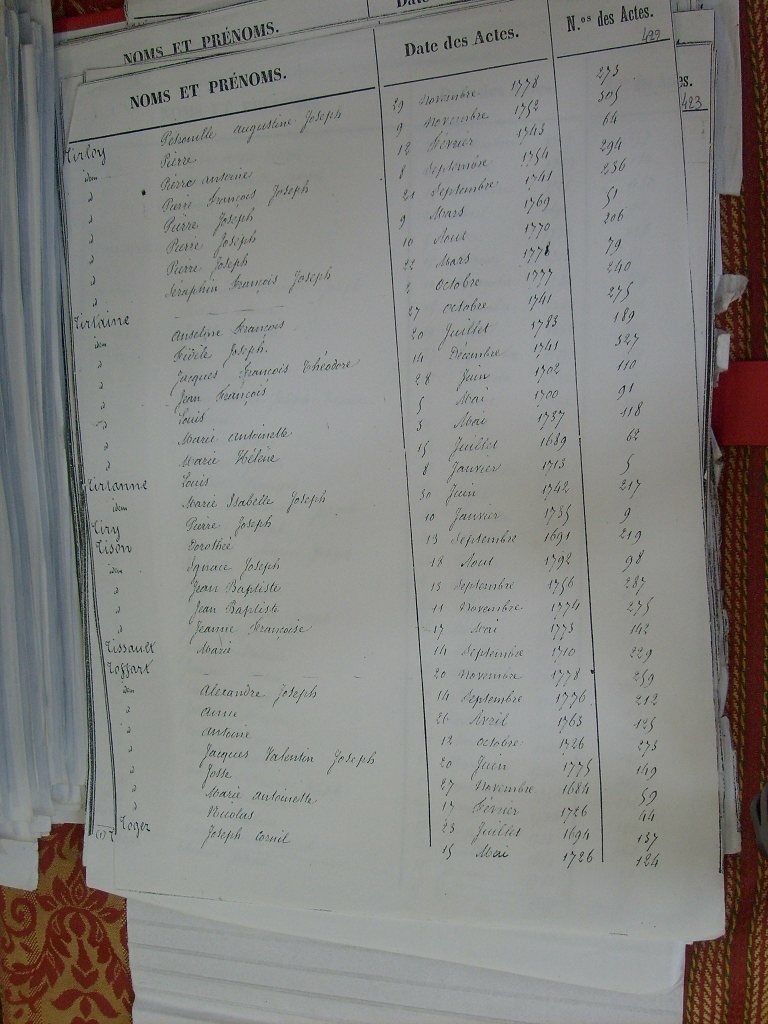 NOMS ET PRÉNOMS. Date
NOMS ET PRÉNOMS. Date des Actes. N.os des Actes.
422
es.
423
Tirloy Petronille Augustine Joseph 29 Novembre 1778 273
idem Pierre 9 Novembre 1752 305
d Pierre Antoine 12 Février 1743 64
d Pierre François Joseph 8 Septembre 1754 294
d Pierre Joseph 21 Septembre 1741 256
d Pierre Joseph 9 Mars 1769 51
d Pierre Joseph 10 Aout 1770 206
d Seraphin François Joseph 22 Mars 1778 79
Tirlaine — 2 Octobre 1777 240
idem Anseline François 27 Octobre 1741 275
d Fidèle Joseph 20 Juillet 1783 189
d Jacques François Théodore 14 Décembre 1741 327
d Jean François 28 Juin 1702 110
d Louis 5 Mai 1700 91
d Marie Antoinette 3 Mai 1737 118
d Marie Hélène 15 Juillet 1689 62
Tirlanne Louis 8 Janvier 1713 5
idem Marie Isabelle Joseph 30 Juin 1742 217
Tiry Pierre Joseph 10 Janvier 1755 9
Tison Dorothée 13 Septembre 1691 219
idem Ignace Joseph 18 Aout 1792 98
d Jean Baptiste 13 Septembre 1756 287
d Jean Baptiste 11 Novembre 1774 275
d Jeanne Françoise 17 Mai 1773 142
Tissault Marie 14 Septembre 1710 229
Toffart — 20 Novembre 1778 259
idem Alexandre Joseph 14 Septembre 1776 212
d Anne 26 Avril 1763 125
d Antoine 12 Octobre 1726 273
d Jacques Valentin Joseph 20 Juin 1775 149
d Josse 27 Novembre 1684 59
d Marie Antoinette 17 Février 1726 44
d Nicolas 23 Juillet 1694 137
Toger Joseph Corneil 15 Mai 1726 124